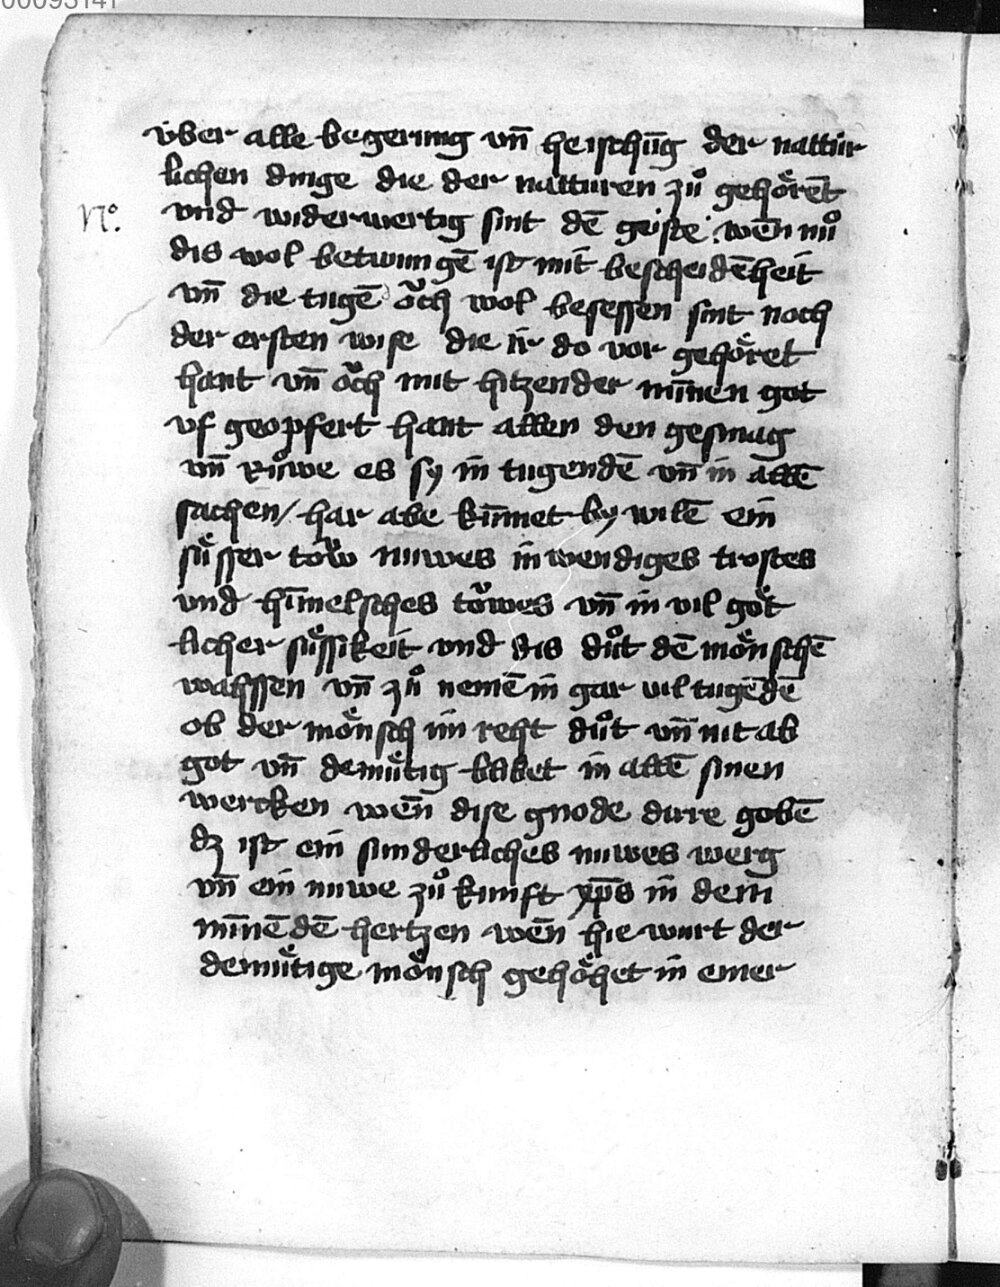 00093141
v́ber alle begerung vn̄ heischūg der nattúr
lichen dinge die der natturen zů gehoͤrēt
No. vnd widerwertig sint dē geiste. wēn nů
dis wol betwungē ist mit bescheidēheit
vn̄ die tugē oͮch wol besessen sint noch
der ersten wise die ir do vor gehoͤret
hant vn̄ oͮch mit hitzender mīnen got
vf geopfert hant allen den gesmag
vn̄ růwe es sy in tugendē vn̄ in allē
sachen / har abe kūmet by wilē ein
suͤsser toͮw nuwes inwendiges trostes
vnd hīmelsches toͮwes vn̄ in vil goͤt
licher suͤssikeit vnd dis důt dē moͤnschē
wahssen vn̄ zů nemē in gar vil tugēdē
ob der moͤnsch im reht důt vn̄ nit ab
got vn̄ demuͤtig blibet in allē sinen
wercken wēn dise gnode dirre gobē
dz ist ein sunderliches nuwes werg
vn̄ ein nuwe zů kunft xp̄s in dem
mīnēdē hertzen wēn hie wurt der
demuͤtige moͤnsch gehoͤhet in einer